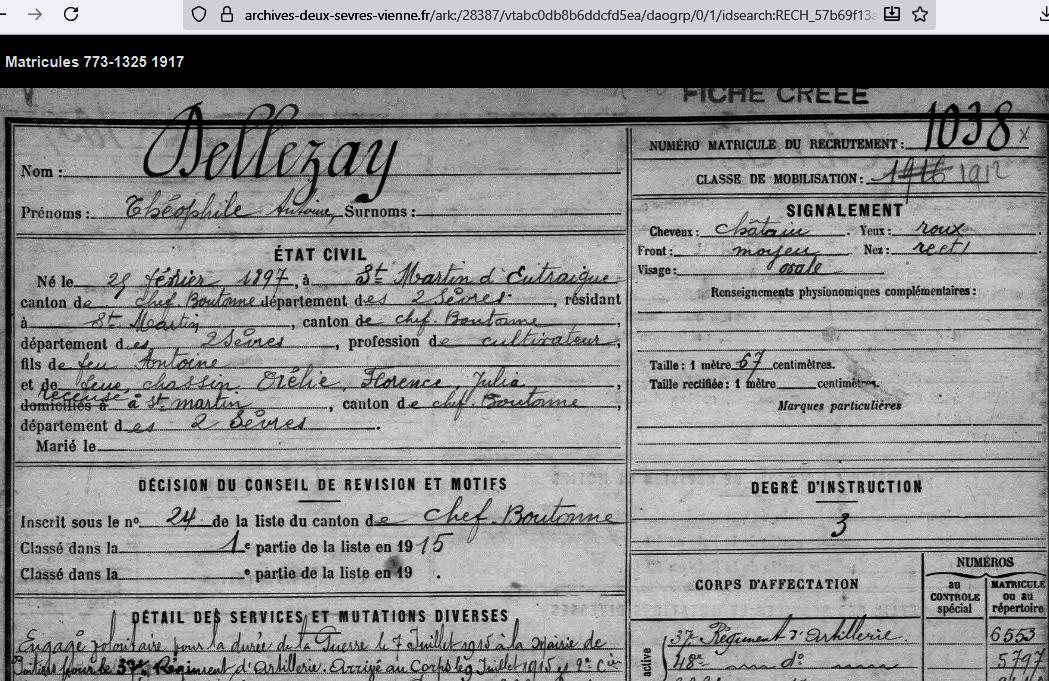 archives-deux-sevres-vienne.fr/ark:/28387/vtabc0db8b6ddcfd5ea/daogrp/0/1/idsearch:RECH_57b69f13a
Matricules 773-1325 1917
FICHE CRÉÉE
Nom : Dellezay
Prénoms : Théophile Antoine, Surnoms :
NUMÉRO MATRICULE DU RECRUTEMENT : 1038 x
CLASSE DE MOBILISATION : 1916 1912
ÉTAT CIVIL
Né le 25 février 1897, à St Martin d'Entraigue
canton de chef Boutonne département des 2 Sèvres, résidant
à St Martin, canton de chef. Boutonne,
département des 2 Sèvres, profession de cultivateur,
fils de feu Antoine
et de feue, chassin Orélie, Florence, Julia,
recensé
domiciliés à à St martin, canton de chef. Boutonne,
département des 2 Sèvres.
Marié le
SIGNALEMENT
Cheveux : châtain Yeux : roux
Front : moyen Nez : rect
Visage : ovale
Renseignements physionomiques complémentaires :
Taille : 1 mètre 67 centimètres.
Taille rectifiée : 1 mètre centimètres.
Marques particulières
DÉCISION DU CONSEIL DE REVISION ET MOTIFS
Inscrit sous le no 24 de la liste du canton de chef. Boutonne
Classé dans la 1e partie de la liste en 1915
Classé dans la e partie de la liste en 19 .
DEGRÉ D'INSTRUCTION
3
DÉTAIL DES SERVICES ET MUTATIONS DIVERSES
Engagé volontaire pour la durée de la Guerre le 7 Juillet 1915 à la Mairie de
Poitiers pour le 37e Régiment d'Artillerie. Arrivé au Corps le 9 Juillet 1915 2e
CORPS D'AFFECTATION
NUMÉROS
au CONTROLE spécial
MATRICULE ou au répertoire
active
37e Régiment d'Artillerie. 6553
48e do 5797